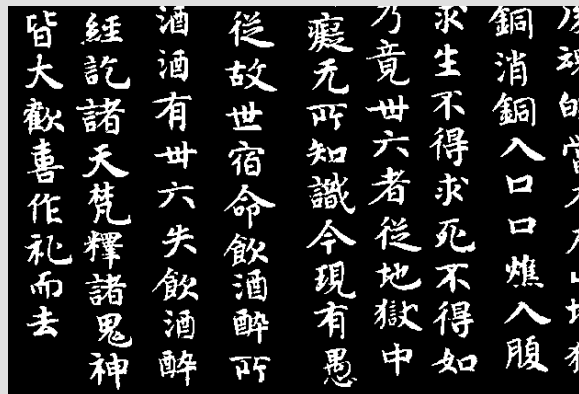 銅消銅入口口燋入腹
求生不得求死不得如
乃竟卅六者從地獄中
癡无所知識今現有愚
從故世宿命飲酒醉所
酒酒有卅六失飲酒醉
經訖諸天梵釋諸鬼神
皆大歡喜作礼而去